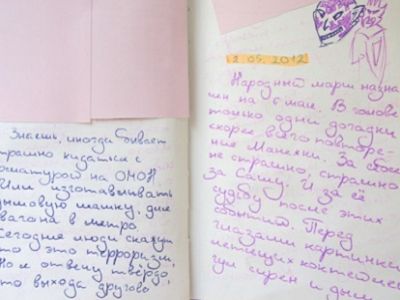 Знаешь, иногда бывает
страшно кидаться с
арматурой на ОМОН
Или изготавливать
дымовую шашку, для
вагона в метро.
Сегодне люди скажут
то это терроризм,
Но я отвечу твёрдо,
что выхода другого
2 05. 2012
Народный марш назна
чен на 6 мая. В голове
только одни догадки
скорее всего повторе-
ние Манежки. За себя
не страшно, страшно
за Сашу. И за её
судьбу после этих
событий. Перед
глазами картинки
летящих коктейлей
гул сирен и дым